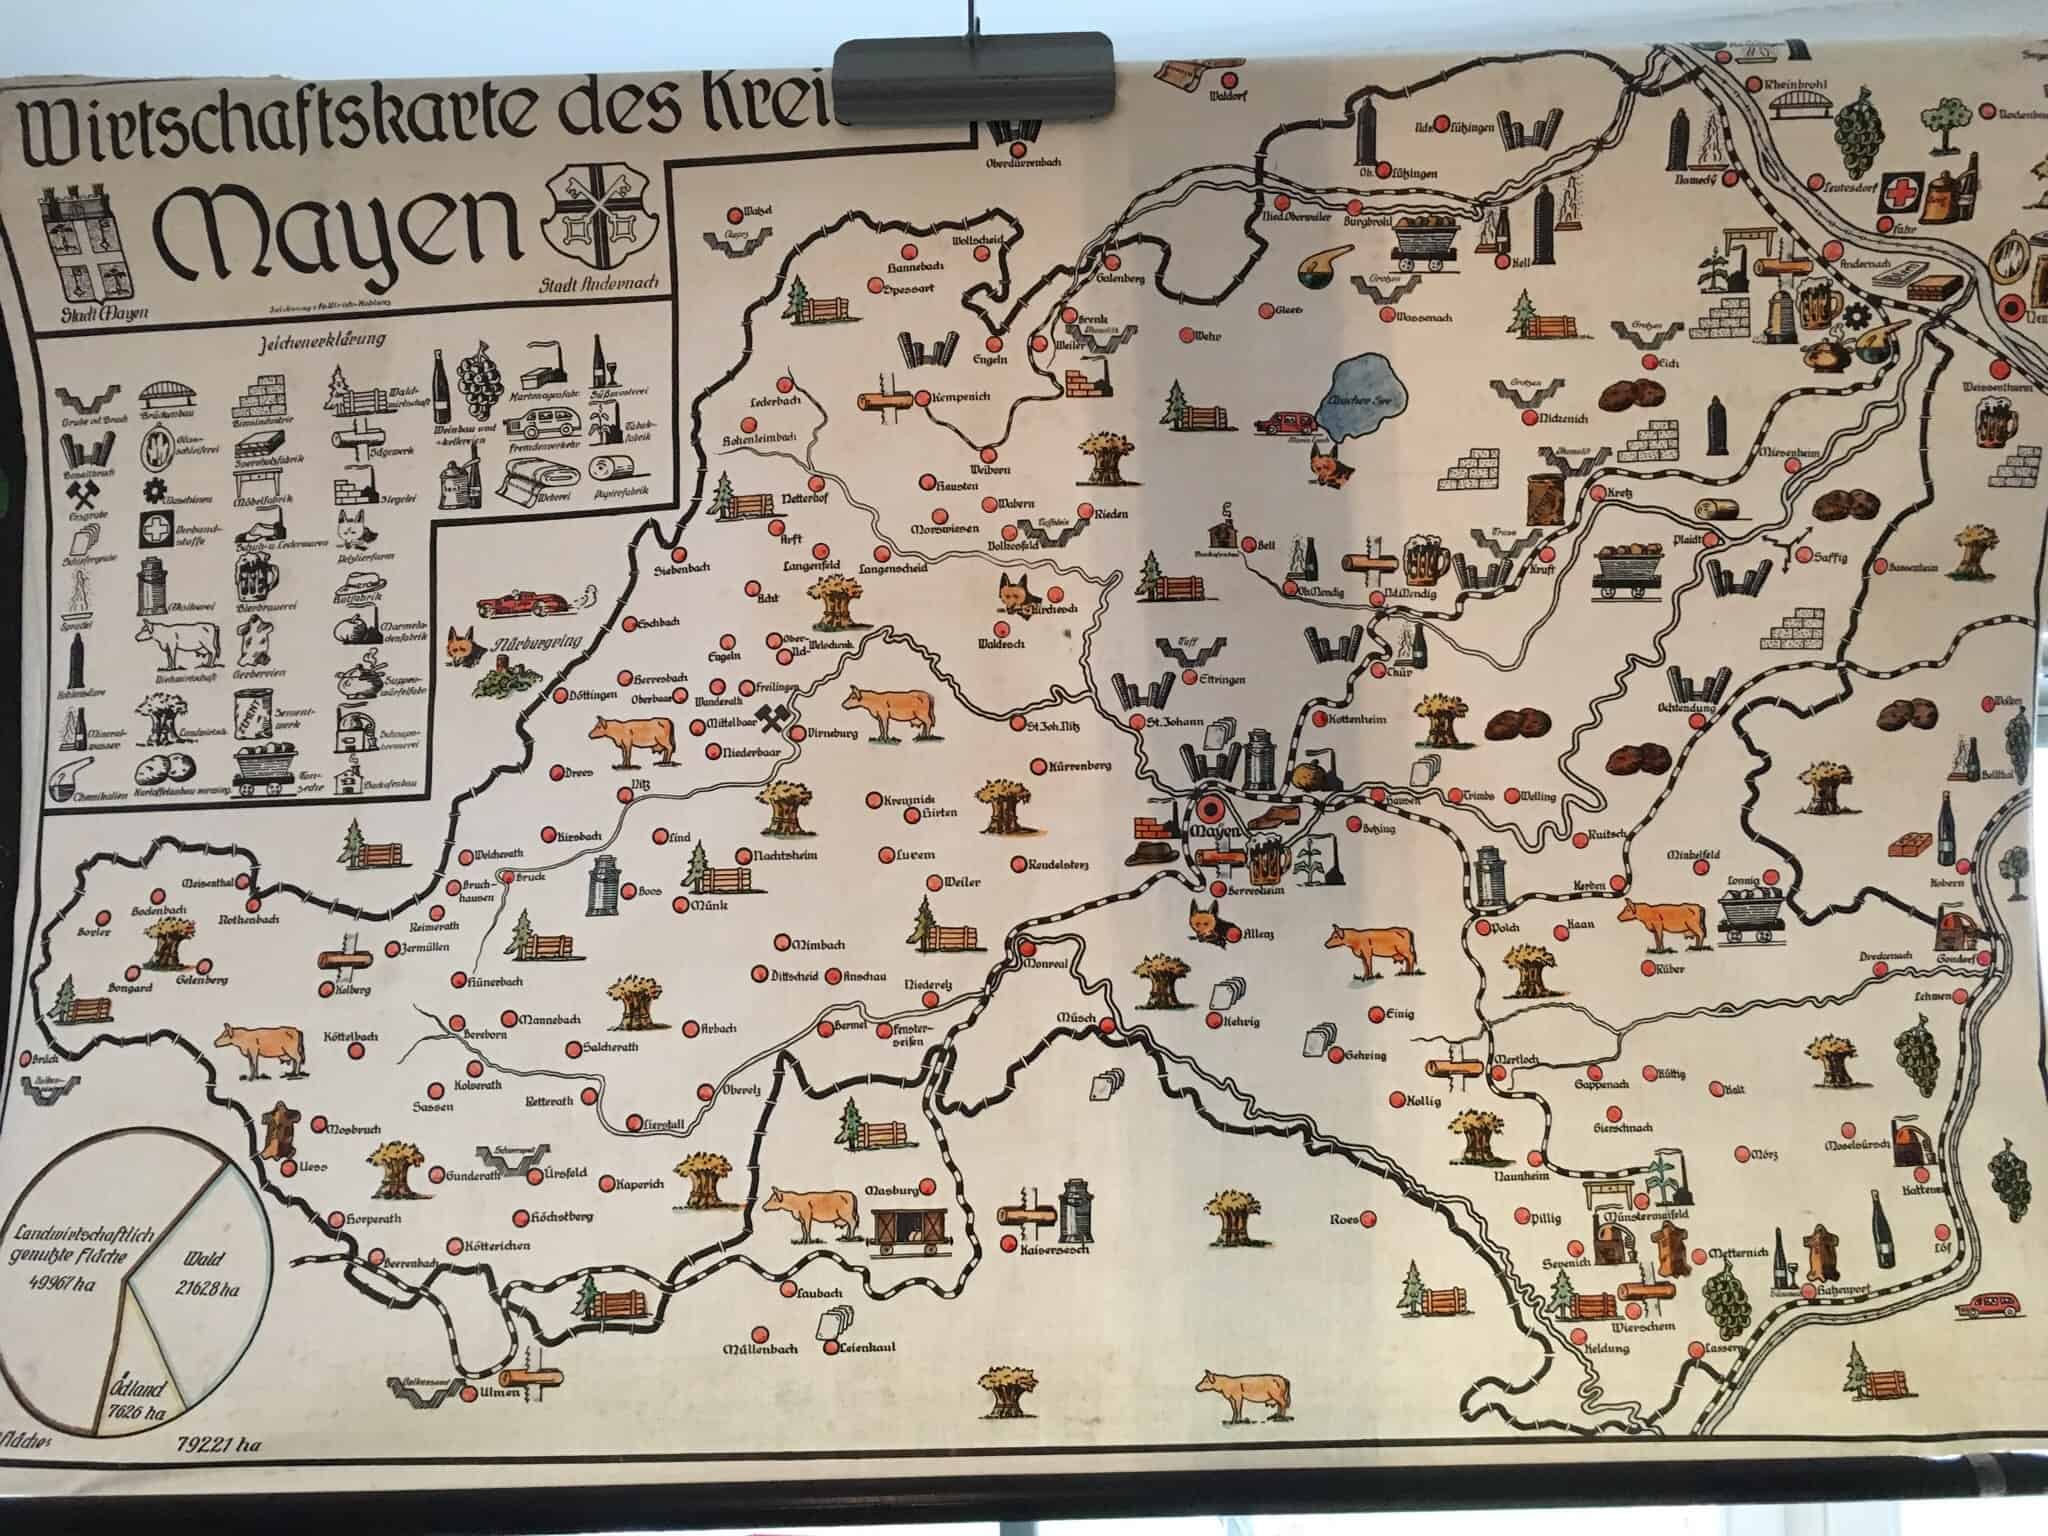 Wirtschaftskarte des Krei
Mayen
Stadt Mayen
Stadt Andernach
Zeichenerklärung
Brückenbau
Bimsindustrie
Wald-
wirtschaft
Weinbau und
-kellereien
Kartonagenfabr.
Süßmosterei
Basaltbruch
Glas-
schleiferei
Sperrholzfabrik
Sägewerk
Fremdenverkehr
Tabak-
fabrik
Erzgrube
Maschinen
Möbelfabrik
Ziegelei
Weberei
Papierfabrik
Schiefergrube
Verband-
stoffe
Schuh- u. Lederwaren
Pelztierfarm
Sprudel
Molkerei
Bierbrauerei
Hutfabrik
Kohlensäure
Viehwirtschaft
Gerbereien
Marmela-
denfabrik
Suppen-
würfelfabr.
Mineral-
wasser
Landwirtsch.
Zement-
werk
Schnaps-
brennerei
Chemikalien
Ton-
zeche
Backofenbau
Oberdürenbach
Waldorf
Rheinbrohl
Ndr. Lützingen
Ob. Lützingen
Namedy
Leutesdorf
Fahr
Andernach
Weissenthurm
Wollscheid
Hannebach
Spessart
Galenberg
Nied. Oberweiler
Burgbrohl
Kell
Glees
Wassenach
Wehr
Brenk
Weiler
Engeln
Eich
Nickenich
Miesenheim
Laacher See
Maria Laach
Kempenich
Lederbach
Hohenleimbach
Weibern
Netterhof
Hausten
Wabern
Morswiesen
Volkesfeld
Rieden
Arft
Langenfeld
Langenscheid
Siebenbach
Acht
Kirchesch
Waldesch
Bell
Ob. Mendig
Nd. Mendig
Kruft
Kretz
Plaidt
Saffig
Bassenheim
Nürburgring
Eschbach
Engeln
Ober-
Nd.-
Welschenb.
Döttingen
Herresbach
Oberbaar
Wanderath
Freilingen
Mittelbaar
Niederbaar
Virneburg
St. Joh. Nitz
St. Johann
Ettringen
Tuff
Thür
Kottenheim
Ochtendung
Drees
Nitz
Kürrenberg
Kreuznick
Hirten
Mayen
Hausen
Trimbs
Welling
Betzing
Ruitsch
Minkelfeld
Kerben
Lonnig
Kobern
Welcherath
Kirsbach
Lind
Nachtsheim
Luxem
Weiler
Reudelsterz
Berresheim
Allenz
Bruch-
hausen
Bruck
Boos
Münk
Reimerath
Meisenthal
Rothenbach
Bodenbach
Borler
Bongard
Gelenberg
Zermüllen
Kolberg
Hünerbach
Mimbach
Ditscheid
Anschau
Niederelz
Monreal
Polch
Kaan
Rüber
Dreckenach
Gondorf
Lehmen
Brück
Köttelbach
Bereborn
Mannebach
Salcherath
Arbach
Bermel
Fenster-
seifen
Müsch
Kehrig
Gehring
Einig
Mertloch
Gappenach
Küttig
Kalt
Kolverath
Sassen
Retterath
Lierstall
Oberelz
Kollig
Gierschnach
Mörz
Moselsürsch
Kattenes
Mosbruch
Uess
Gunderath
Ürsfeld
Kaperich
Höchstberg
Horperath
Kötterichen
Berenbach
Masburg
Kaisersesch
Roes
Naunheim
Pillig
Münstermaifeld
Sevenich
Metternich
Löf
Hatzenport
Wierschem
Keldung
Lasserg
Laubach
Müllenbach
Leienkaul
Ulmen
Landwirtschaftlich
genutzte Fläche
49967 ha
Wald
21628 ha
Ödland
7626 ha
79221 ha